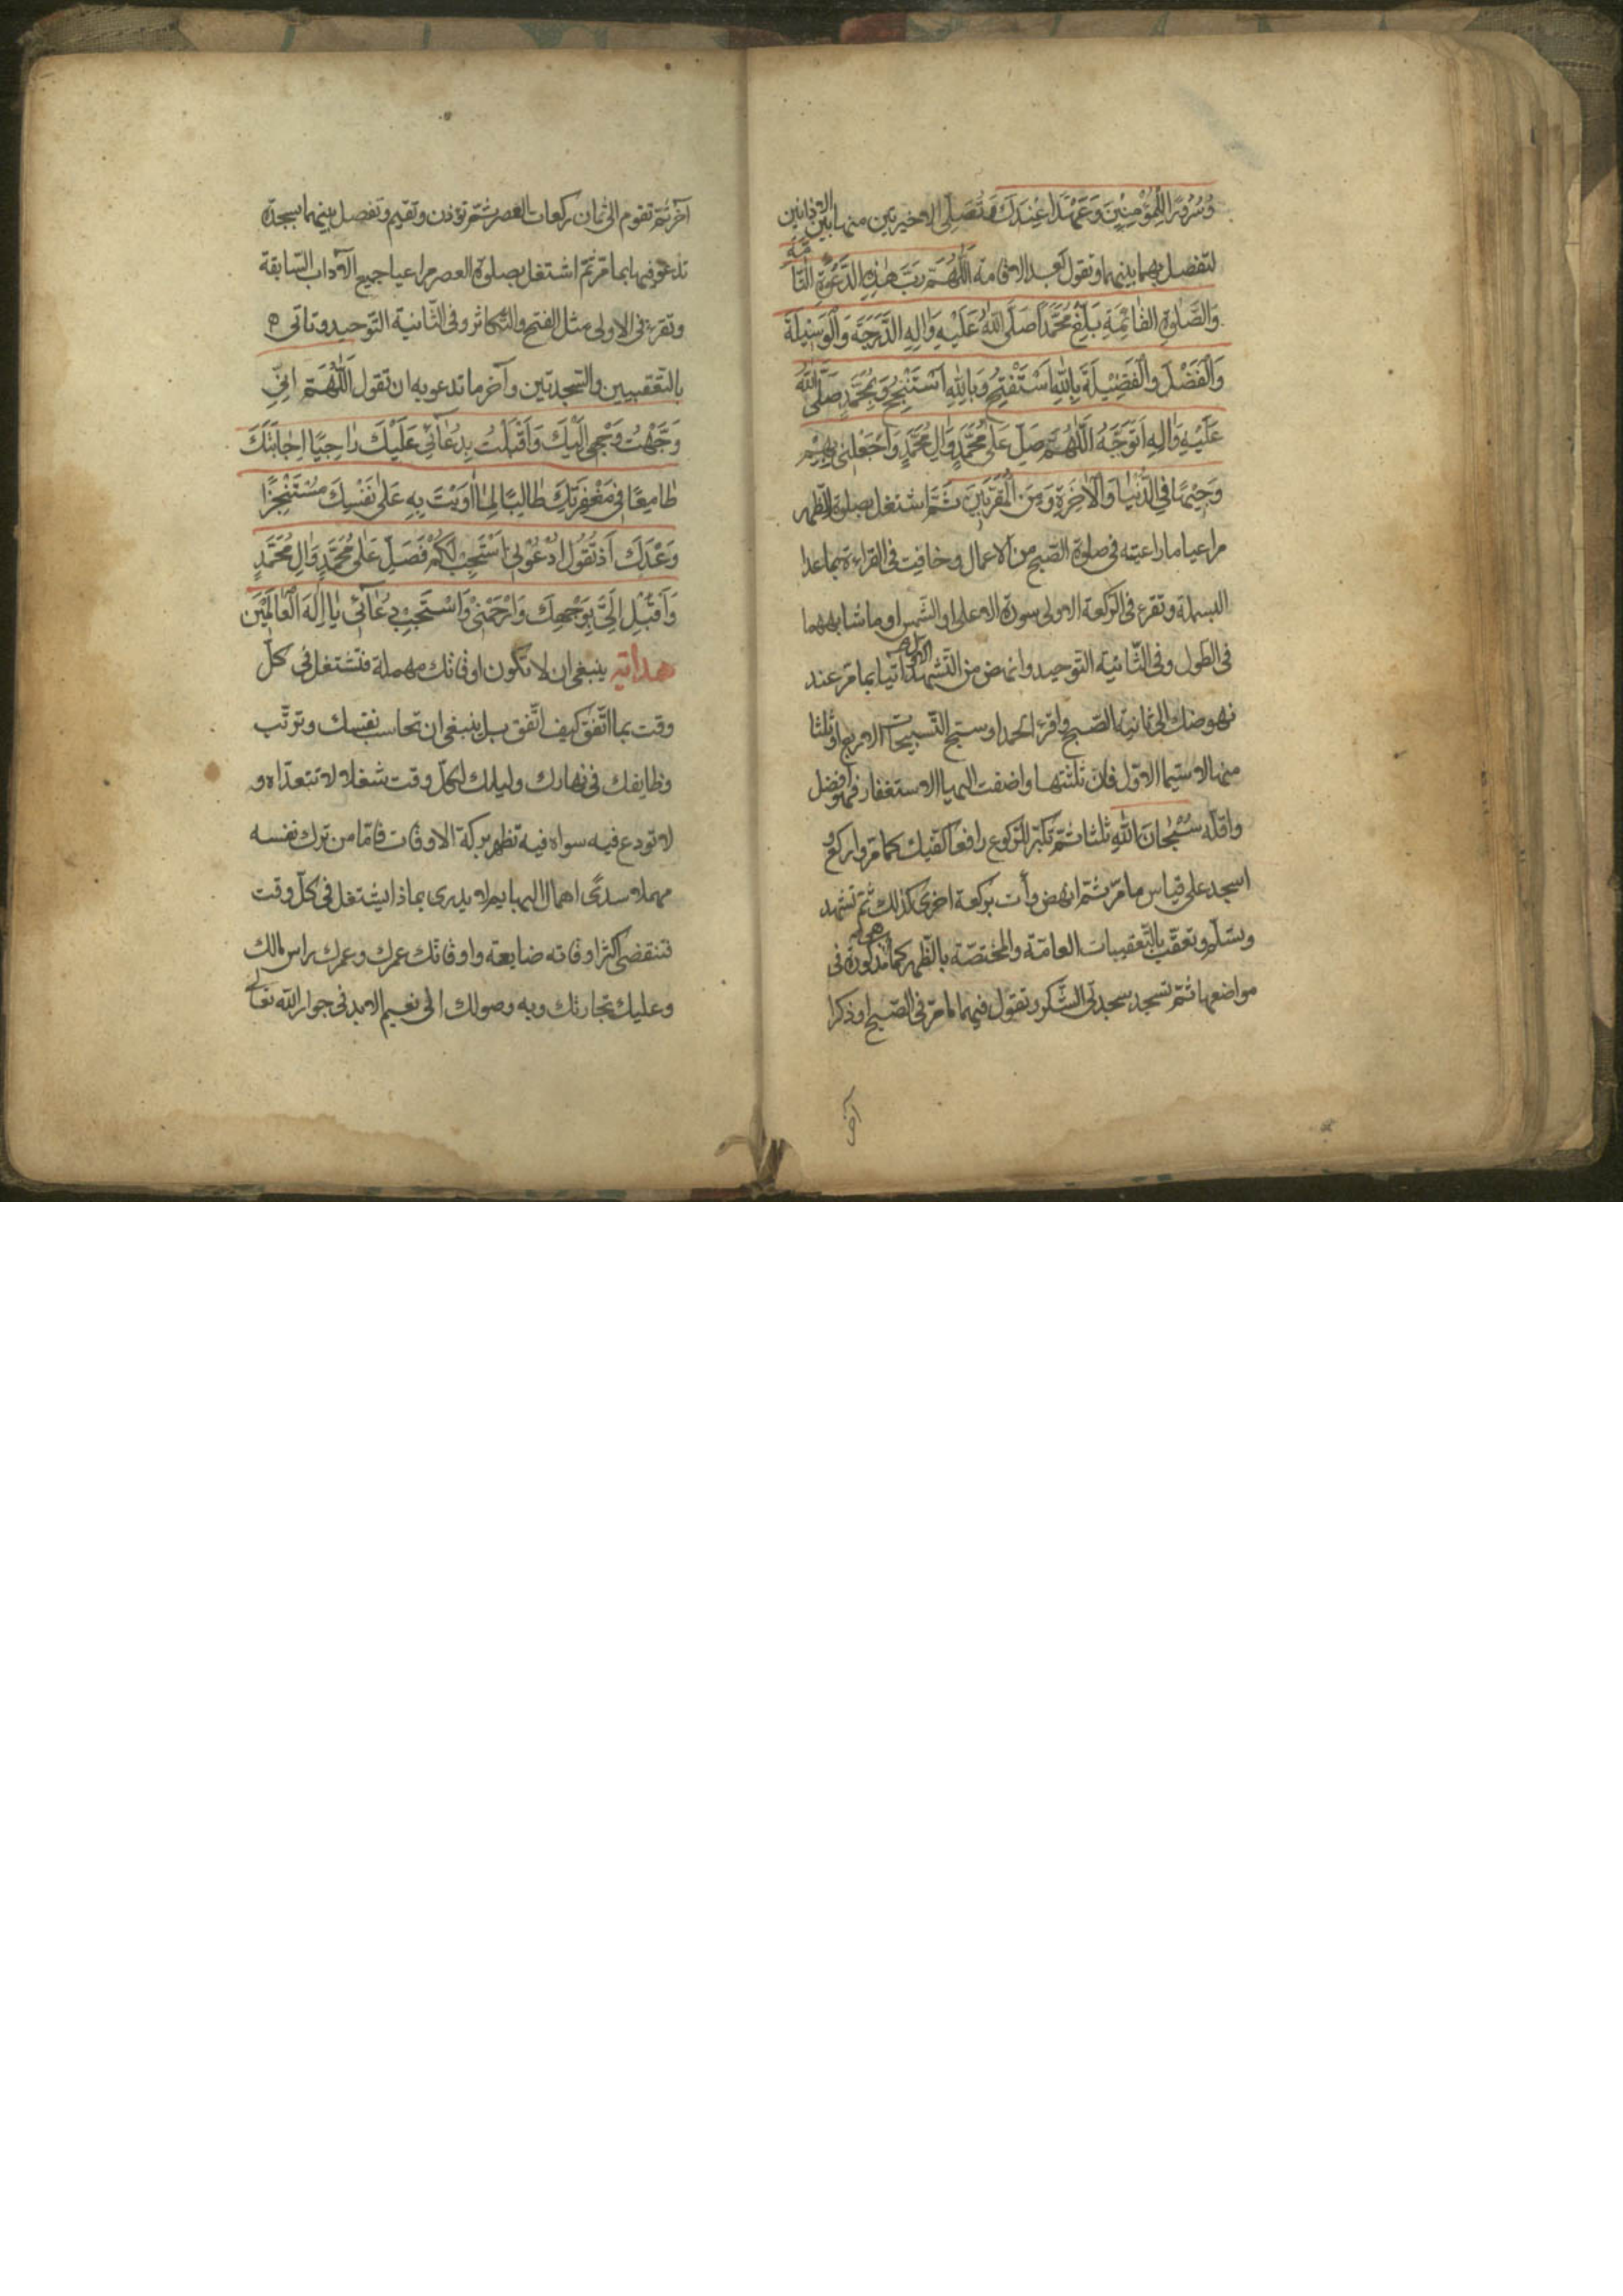 وَسُرُورًا لِلْمُؤْمِنِينَ وَعَهْدًا عِنْدَكَ وتصلي الاخيرتين منها بين الاذانين
لتفصل بهما بينهما وتقول بعد الاقامة اَللّٰهُمَّ رَبَّ هٰذِهِ الدَّعْوَةِ التَّامَّةِ
وَالصَّلٰوةِ القٰائِمَةِ بَلِّغْ مُحَمَّدًا صَلَّى اللّٰهُ عَلَيْهِ وَاٰلِهِ الدَّرَجَةَ وَالْوَسِيلَةَ
وَالْفَضْلَ وَالْفَضِيلَةَ بِاللّٰهِ اَسْتَفْتِحُ وَبِاللّٰهِ اَسْتَنْجِحُ وَبِمُحَمَّدٍ صَلَّى اللّٰهُ
عَلَيْهِ وَاٰلِهِ اَتَوَجَّهُ اَللّٰهُمَّ صَلِّ عَلٰى مُحَمَّدٍ وَاٰلِ مُحَمَّدٍ وَاجْعَلْنِي بِهِمْ
وَجِيهًا فِي الدُّنْيٰا وَالْاٰخِرَةِ وَمِنَ الْمُقَرَّبِينَ ثمّ اشتغل بصلوة الظهر
مراعيا ما راعيته فى صلوة الصبح من الاعمال وخافت فى القراءة بما عدا
البسملة وتقرء فى الركعة الاولى سورة الاعلى او الشمس او ما شابههما
فى الطول وفى الثّانية التوحيد وانهض من التّشهد الاول آتيا بما مرّ عند
نهوضك الى ثانية الصّبح واقرء الحمد او سبّح التّسبيحات الاربع او ثلثا
منها لا سيّما الاوّل فان ثلثتها واضفت اليها الاستغفار فهو افضل
واقلّه سُبْحٰانَ اللّٰهِ ثلثا ثمّ تكبّر للركوع رافعا كفّيك كما مرّ واركع و
اسجد على قياس ما مرّ ثمّ انهض وأت بركعة اخرى كذلك ثمّ تشهد
وسلّم وتعقّب بالتّعقيبات العامّة والمختصّة بالظّهر كما هى مذكورة فى
مواضعها ثمّ تسجد سجدتى الشكر وتقول فيهما ما مرّ فى الصّبح او ذكرا
آخر
آخر ثمّ تقوم الى ثمان ركعات العصر ثمّ تؤذن وتقيم وتفصل بينهما بسجدة
تدعو فيها بما مرّ ثمّ اشتغل بصلوة العصر مراعيا جميع الآداب السّابقة
وتقرء فى الاولى مثل الفتح والتّكاثر وفى الثّانية التّوحيد وتأتى
بالتّعقيبين والسّجدتين وآخر ما تدعو به ان تقول اَللّٰهُمَّ اِنِّي
وَجَّهْتُ وَجْهِي اِلَيْكَ وَاَقْبَلْتُ بِدُعٰائِي عَلَيْكَ رٰاجِيًا اِجٰابَتَكَ
طٰامِعًا فِي مَغْفِرَتِكَ طٰالِبًا لِمٰا اَوَيْتَ بِهِ عَلٰى نَفْسِكَ مُسْتَنْجِزًا
وَعْدَكَ اِذْ تَقُولُ ادْعُونِي اَسْتَجِبْ لَكُمْ فَصَلِّ عَلٰى مُحَمَّدٍ وَاٰلِ مُحَمَّدٍ
وَاَقْبِلْ اِلَيَّ بِوَجْهِكَ وَارْحَمْنِي وَاسْتَجِبْ دُعٰائِي يٰا اِلٰهَ الْعٰالَمِينَ
هداية ينبغى ان لا تكون اوقاتك مهملة فتشتغل فى كلّ
وقت بما اتّفق كيف اتّفق بل ينبغى ان تحاسب نفسك وترتّب
وظايفك فى نهارك وليلك لكلّ وقت شغلا لا تتعدّاه و
لا تودع فيه سواه فيه تظهر بركة الاوقات فامّا من ترك نفسه
مهملا سدًى اهمال البهايم لا يدرى بماذا يشتغل فى كلّ وقت
فتنقضى اكثر اوقاته ضايعة واوقاتك عمرك وعمرك راس مالك
وعليك تجارتك وبه وصولك الى نعيم الابد فى جوار اللّٰه تعالى